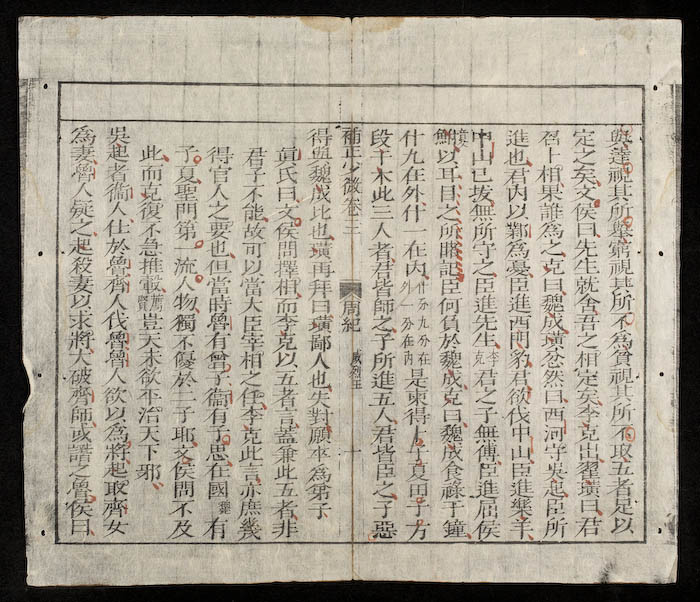 與達視其所擧窮視其所不為貧視其所不取五者足以
定之矣文侯曰先生就舍吾之相定矣李克出翟璜曰君
召卜相果誰為之克曰魏成璜忿然曰西河守吳起臣所
進也君內以鄴為憂臣進西門豹君欲伐中山臣進樂羊
中山已拔無所守之臣進先生李克君之子無傅臣進屈侯
鮒以耳目之所睹記臣何負於魏成克曰魏成食祿千鍾
什九在外什一在內什分九分在外一分在內是東得卜子夏田子方
段干木此三人者君皆師之子所進五人君皆臣之子惡
補正少微卷三
周紀
威烈王
十
得與魏成比也璜再拜曰璜鄙人也失對願卒為弟子
眞氏曰文侯問擇相而李克以五者言蓋兼此五者非
君子不能故可以當大臣宰相之任李克此言亦庶幾
得官人之要也但當時魯有曾子衞有子思在國有
子夏聖門第一流人物獨不優於二子耶文侯問不及
此而克復不急推轂薦賢豈天未欲平治天下邪
吳起者衞人仕於魯齊人伐魯魯人欲以為將起取齊女
為妻魯人疑之起殺妻以求將大破齊師或譖之魯侯曰